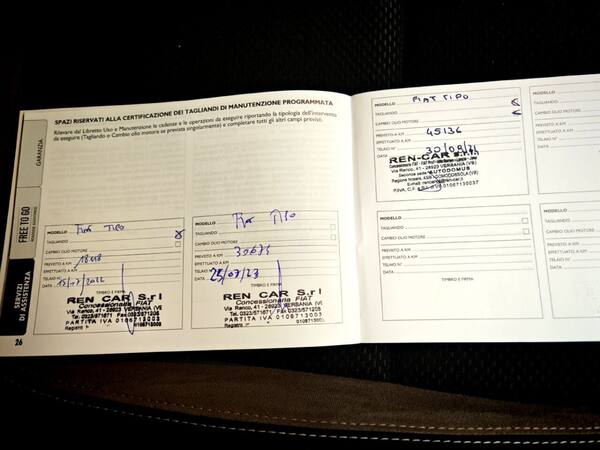 SPAZI RISERVATI ALLA CERTIFICAZIONE DEI TAGLIANDI DI MANUTENZIONE PROGRAMMATA
Rilevare dal Libretto Uso e Manutenzione le cadenze e le operazioni da eseguire riportando la tipologia dell'intervento
da eseguire (Tagliando o Cambio olio motore se previsto singolarmente) e completare tutti gli altri campi previsti.
GARANZIA
FREE TO GO
SERVIZI
DI ASSISTENZA
MODELLO Fiat TIPO
TAGLIANDO
CAMBIO OLIO MOTORE
PREVISTO A KM
EFFETTUATO A KM
TELAIO N°
DATA 15/07/2022
TIMBRO E FIRMA
REN CAR S.r.l
Concessionaria FIAT
Via Renco, 41 - 28923 VERBANIA (V
Tel. 0323/571671 Fax 0323/571206
PARTITA IVA 01067130037
Registro
MODELLO Fiat Tipo
TAGLIANDO
CAMBIO OLIO MOTORE
PREVISTO A KM 30673
EFFETTUATO A KM
TELAIO N°
DATA 25/07/23
TIMBRO E FIRMA
REN CAR S.r.l
Concessionaria FIAT
Via Renco, 41 - 28923 VERBANIA (V
Tel. 0323/571671 Fax 0323/571206
Registro
26
MODELLO FIAT TIPO
TAGLIANDO
CAMBIO OLIO MOTORE
PREVISTO A KM 45136
EFFETTUATO A KM
TELAIO N°
DATA
REN-CAR S.r.l.
AUTODOMUS
MODELLO
TAGLIANDO
CAMBIO OLIO MOTORE
PREVISTO A KM
EFFETTUATO A KM
TELAIO N°
DATA
TIMBRO E FIRMA
MODELLO
TAGLIANDO
CAMBIO OLIO
PREVISTO A KM
EFFETTUATO A
TELAIO N°
DATA
MODELLO
TAGLIANDO
CAMBIO OLIO
PREVISTO A KM
EFFETTUATO A
TELAIO N°
DATA